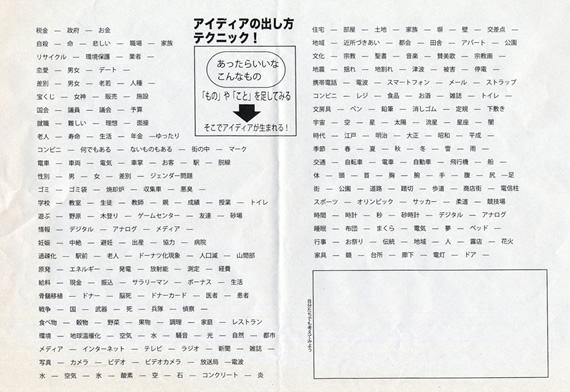 アイディアの出し方
テクニック！
あったらいいな
こんなもの
「もの」や「こと」を足してみる
そこでアイディアが生まれる！
税金 ― 政府 ― お金
自殺 ― 命 ― 悲しい ― 職場 ― 家族
リサイクル ― 環境保護 ― 業者 ―
恋愛 ― 男女 ― デート ―
差別 ― 男女 ― 老若 ― 人種 ―
宝くじ ― 女神 ― 販売 ― 施設
国会 ― 議員 ― 議会 ― 予算
就職 ― 難しい ― 理想 ― 面接
老人 ― 寿命 ― 生活 ― 年金 ― ゆったり
コンビニ ― 何でもある ― ないものもある ― 街の中 ― マーク
電車 ― 車両 ― 電気 ― 車掌 ― お客 ― 駅 ― 脱線
性別 ― 男 ― 女 ― 差別 ― ジェンダー問題
ゴミ ― ゴミ袋 ― 焼却炉 ― 収集車 ― 悪臭 ―
学校 ― 教室 ― 生徒 ― 教師 ― 親 ― 成績 ― 授業 ― トイレ
遊ぶ ― 野原 ― 木登り ― ゲームセンター ― 友達 ― 砂場
情報 ― デジタル ― アナログ ― メディア ―
妊娠 ― 中絶 ― 避妊 ― 出産 ― 協力 ― 病院
過疎化 ― 駅前 ― 老人 ― ドーナツ化現象 ― 人口減 ― 山間部
原発 ― エネルギー ― 発電 ― 放射能 ― 測定 ― 経費
給料 ― 現金 ― 振込 ― サラリーマン ― ボーナス ― 生活
骨髄移植 ― ドナー ― 脳死 ― ドナーカード ― 医者 ― 患者
戦争 ― 国 ― 武器 ― 死 ― 兵隊 ― 偵察 ―
食べ物 ― 穀物 ― 野菜 ― 果物 ― 調理 ― 家庭 ― レストラン
環境 ― 地球温暖化 ― 空気 ― 水 ― 騒音 ― 光 ― 自然 ― 都市
メディア ― インターネット ― テレビ ― ラジオ ― 新聞 ― 雑誌 ―
写真 ― カメラ ― ビデオ ― ビデオカメラ ― 放送局 ―電波
水 ― 空気 ― 氷 ― 酸素 ― 空 ― 石 ― コンクリート ― 炎
住宅 ― 部屋 ― 土地 ― 家族 ― 塀 ― 壁 ― 交差点
地域 ― 近所づきあい ― 都会 ― 田舎 ― アパート ― 公園
文化 ― 宗教 ― 聖書 ― 音楽 ― 賛美歌 ― 宗教画 ―
地震 ― 揺れ ― 地割れ ― 津波 ― 被害 ― 停電 ―
携帯電話 ― 電波 ― スマートフォン ― メール ― ストラップ
コンビニ ― レジ ― 食品 ― お酒 ― 雑誌 ― トイレ ―
文房具 ― ペン ― 鉛筆 ― 消しゴム ― 定規 ― 下敷き
宇宙 ― 空 ― 星 ― 太陽 ― 流星 ― 星座 ― 闇
時代 ― 江戸 ― 明治 ― 大正 ― 昭和 ― 平成 ―
季節 ― 春 ― 夏 ― 秋 ― 冬 ― 雪 ― 雨 ―
交通 ― 自転車 ― 電車 ― 自動車 ― 飛行機 ― 船 ―
体 ― 頭 ― 首 ― 胸 ― 腕 ― 手 ― 腹 ― 尻 ― 足
街 ― 公園 ― 道路 ― 踏切 ― 歩道 ― 商店街 ― 電信柱
スポーツ ― オリンピック ― サッカー ― 柔道 ― 競技場
時間 ― 時計 ― 秒 ― 砂時計 ― デジタル ― アナログ
睡眠 ― 布団 ― まくら ― 電気 ― 夢 ― ベッド ―
行事 ― お祭り ― 伝統 ― 地域 ― 人 ― 露店 ― 花火
家具 ― 鏡 ― 台所 ― 廊下 ― 電灯 ― ドア ―